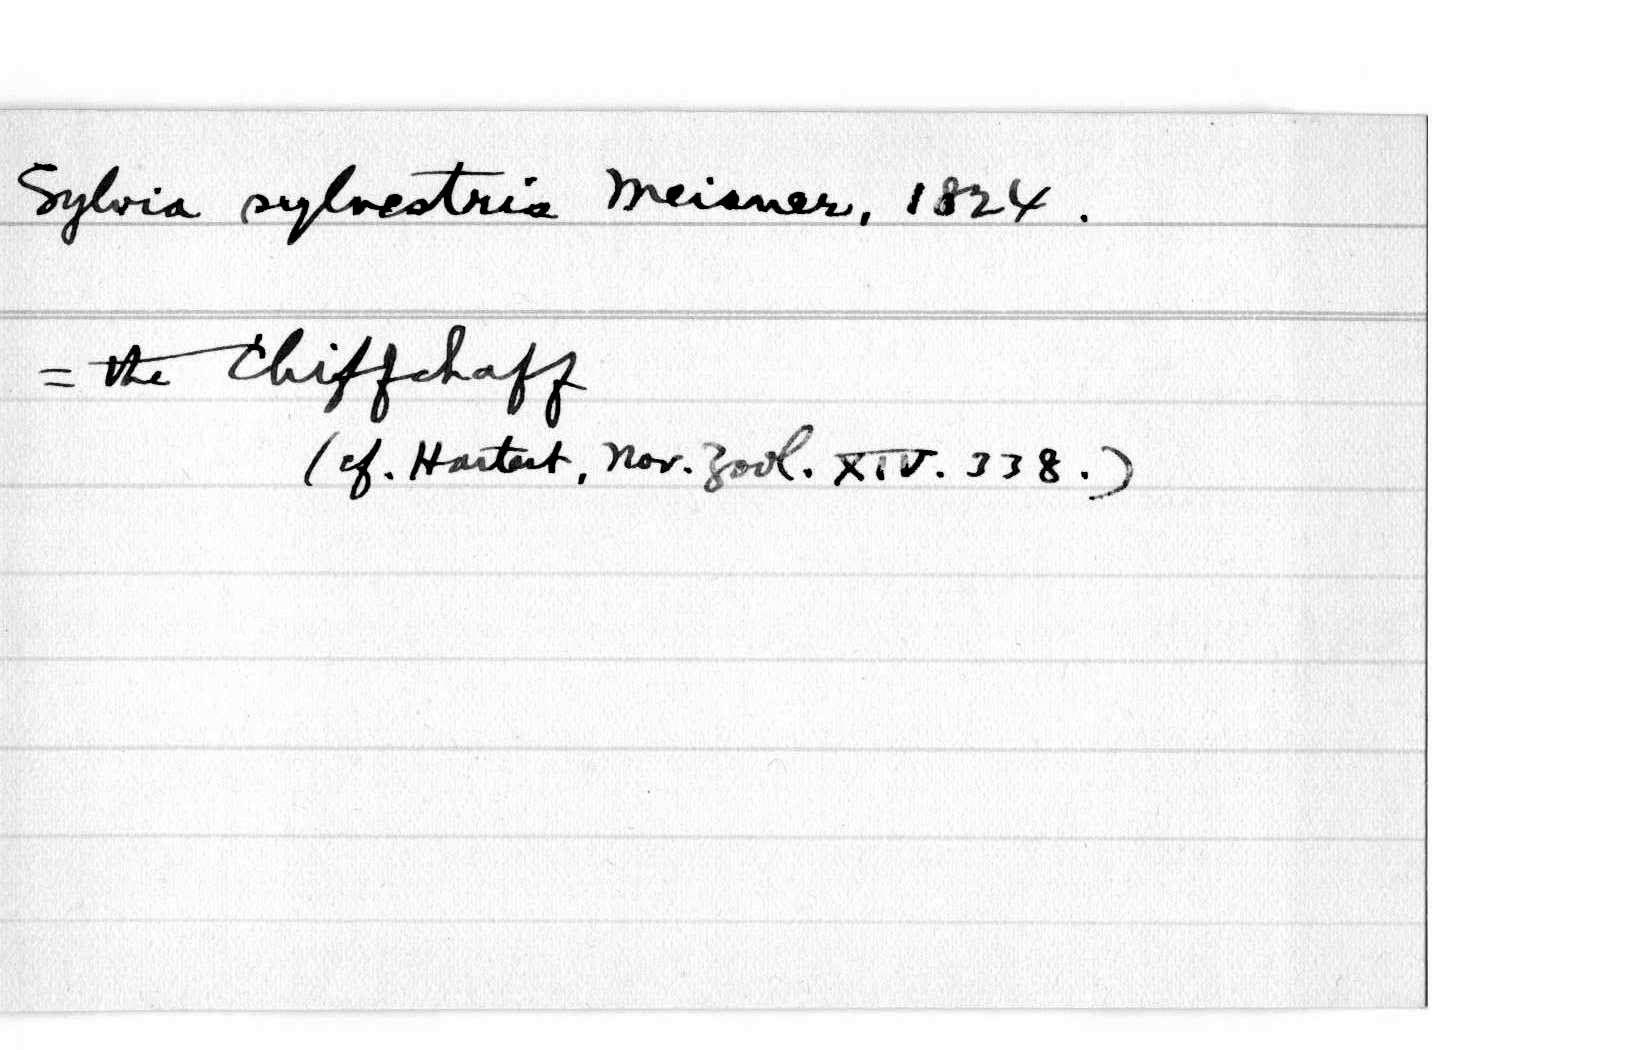 Sylvia sylvestris Meisner, 1824.
= the Chiffchaff
(cf. Hartert, Nov. Zool. XIV. 338.)